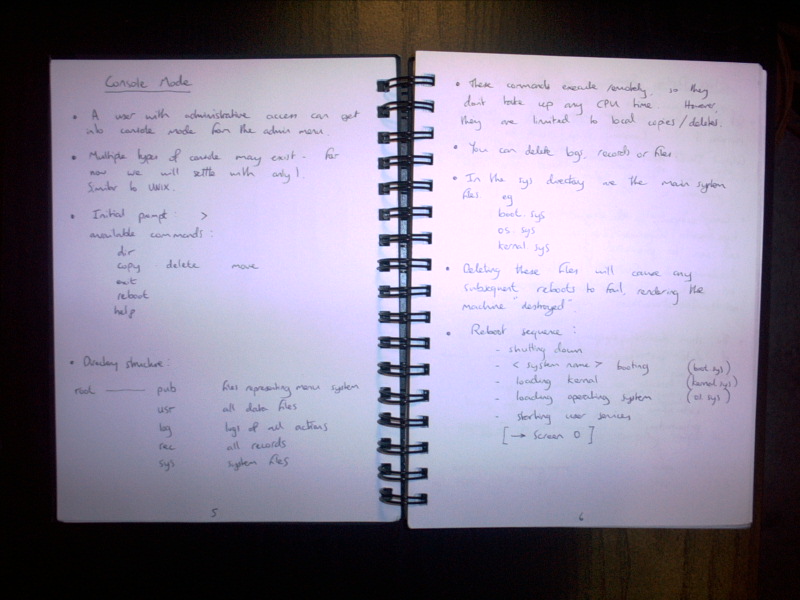 Console Mode
• A user with administrative access can get
into console mode from the admin menu.
• Multiple types of console may exist - for
now we will settle with only 1.
Similar to UNIX.
• Initial prompt : >
available commands :
dir
copy delete move
exit
reboot
help
• Directory structure :
root —— pub files representing menu system
usr all data files
log logs of all actions
rec all records
sys system files
5
• These commands execute remotely, so they
don't take up any CPU time. However,
they are limited to local copies/deletes.
• You can delete logs, records or files.
• In the sys directory are the main system
files. eg
boot.sys
os.sys
kernal.sys
• Deleting these files will cause any
subsequent reboots to fail, rendering the
machine "destroyed".
• Reboot sequence :
- shutting down
- < system name > booting (boot.sys)
- loading kernal (kernal.sys)
- loading operating system (os.sys)
- starting user services
[→ Screen 0]
6